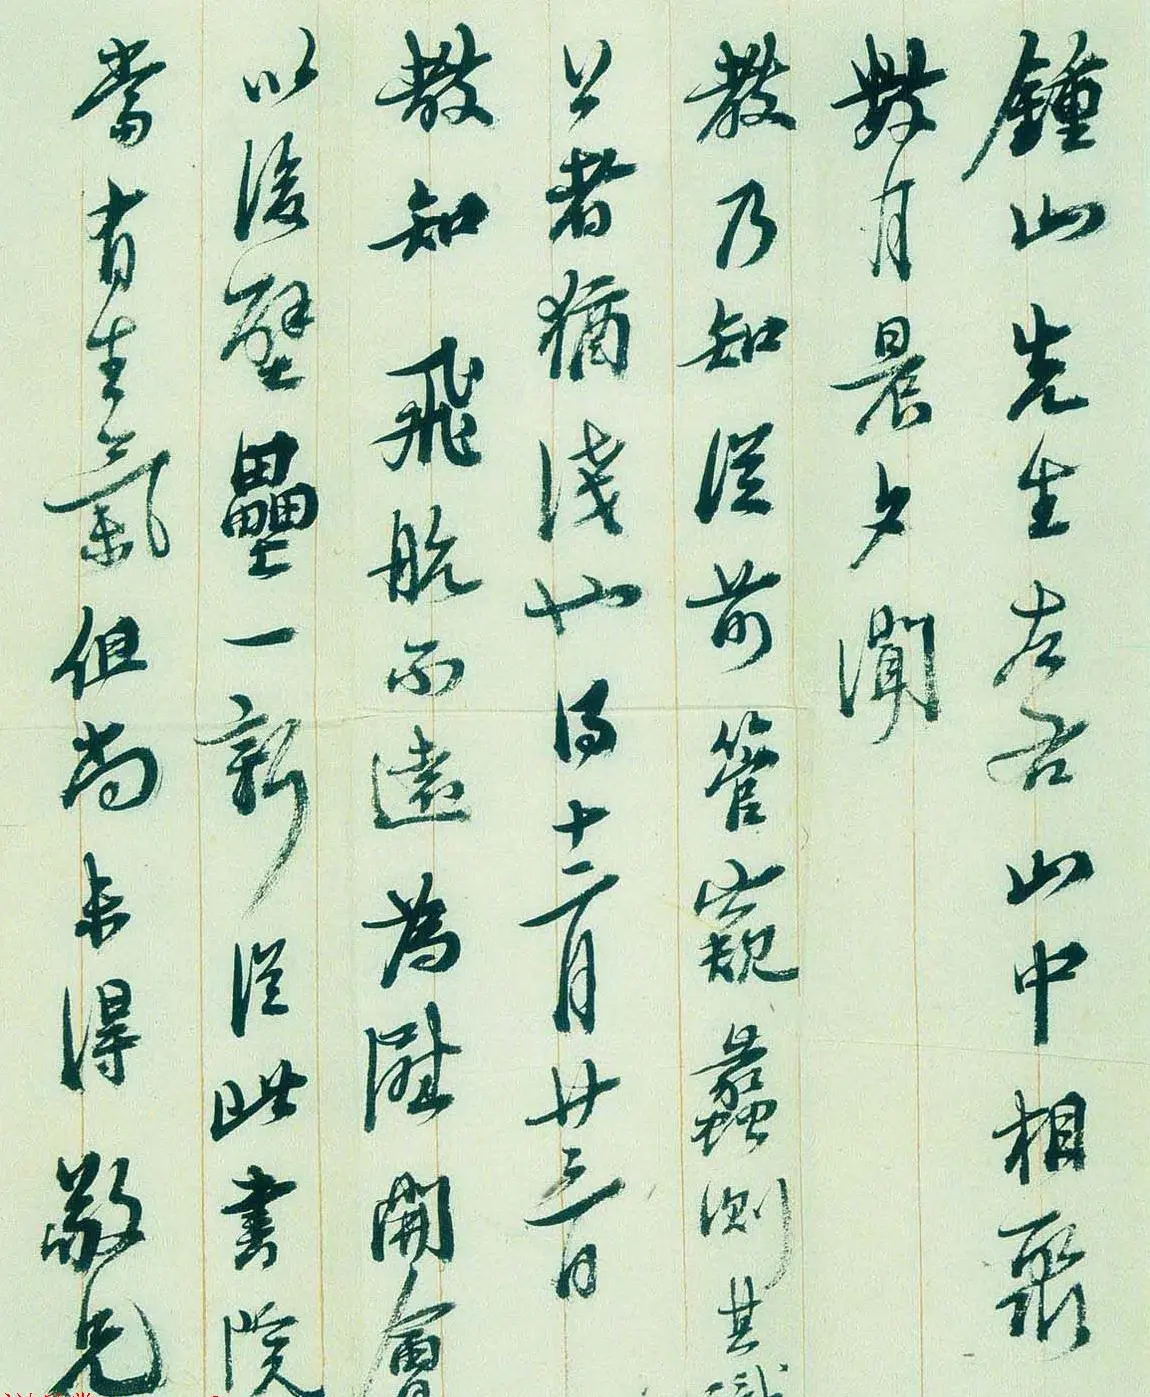 鍾山先生左右山中相聚
數月晨夕聞
教乃知從前管窺蠡測其識
公者猶淺也得十二月廿三日
教知飛航不遠為陞開會
以後壁壘一新從此書院
當有生氣但尚未得敬兄